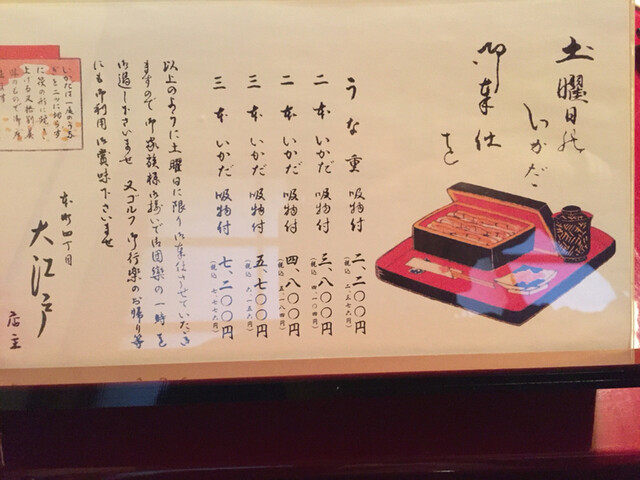 土曜日
いかだ
御奉仕
を
うな重 吸物付 二、二〇〇円
(税込 二、三七六円)
二本いかだ 吸物付 三、八〇〇円
(税込 四、一〇四円)
二本いかだ 吸物付 四、八〇〇円
(税込 五、一八四円)
三本いかだ 吸物付 五、七〇〇円
(税込 六、一五六円)
三本いかだ 吸物付 七、二〇〇円
(税込 七、七七六円)
以上のように土曜日に限り御奉仕させていただき
ますので御家族様御揃いで御団欒の一時を
御過し下さいませ 又ゴルフ御行楽のお帰り等
にも御利用御賞味下さいませ
本町四丁目
大江戸
店主
いかだは一疋のうな
ぎを二ツに切らず
に筏の形に焼き
上げる又格別美